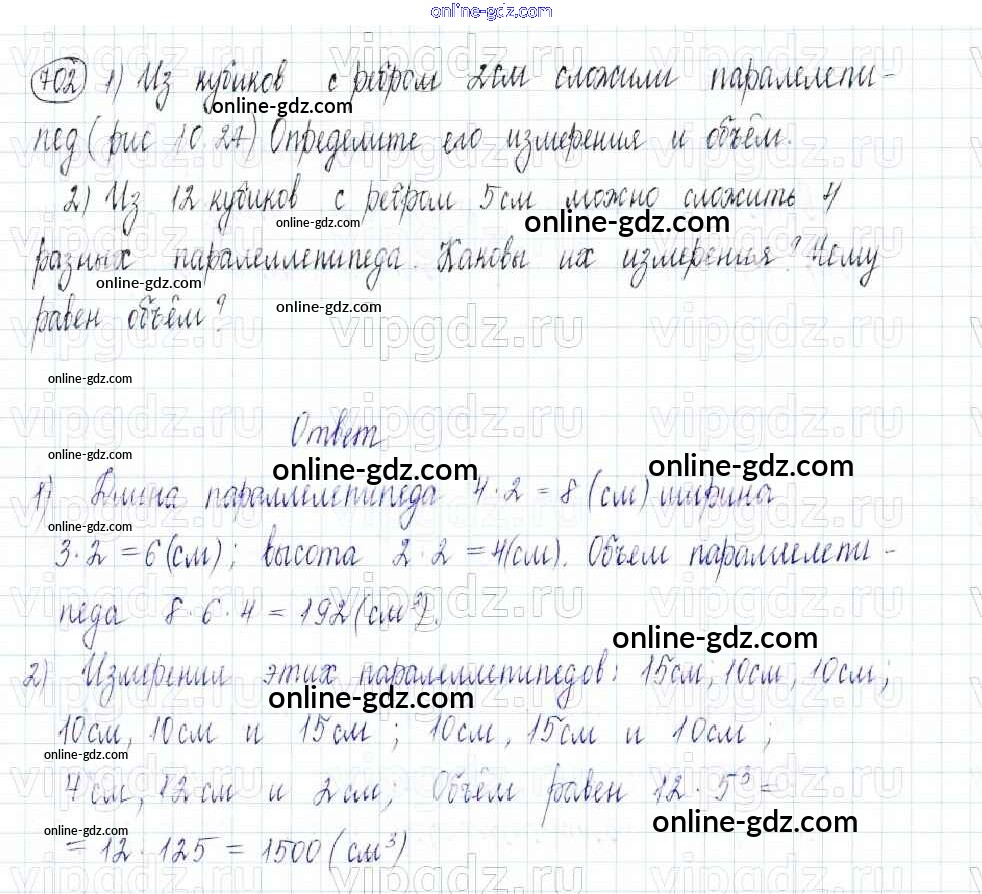 online-gdz.com
702 1) Из кубиков с ребром 2см сложили паралелепи-
online-gdz.com
пед (рис 10.27) Определите его измерения и объём.
2) Из 12 кубиков с ребром 5см можно сложить 4
online-gdz.com online-gdz.com
разных паралеллепипеда. Каковы их измеренья? Чему
online-gdz.com
равен объём?
online-gdz.com
online-gdz.com
Ответ
online-gdz.com
online-gdz.com online-gdz.com
1) Длина параллелепипеда 4·2=8 (см) ширина
online-gdz.com
3·2=6(см); высота 2·2=4(см). Объем параллелепи-
педа 8·6·4=192(см³).
online-gdz.com
2) Измерения этих паралеллепипедов: 15см, 10см, 10см;
online-gdz.com
10см, 10см и 15см; 10см, 15см и 10см;
online-gdz.com
4см, 12см и 2см; Объём равен 12·5³=
online-gdz.com
online-gdz.com
=12·125=1500(см³)